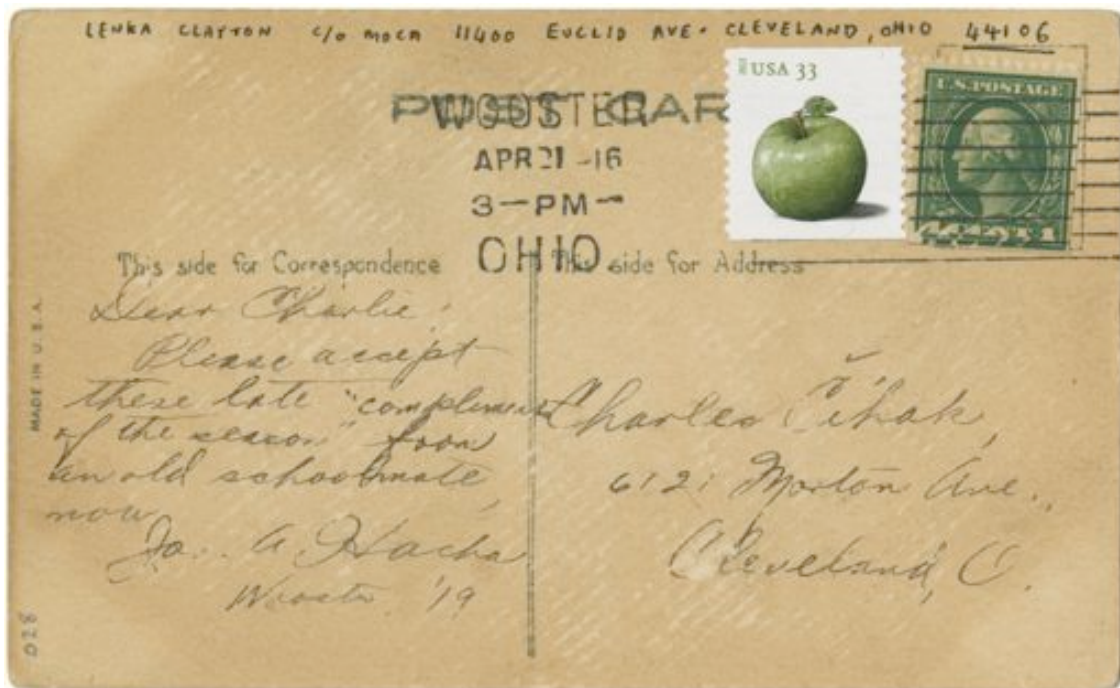 LENKA CLAYTON c/o MOCA 11400 EUCLID AVE. CLEVELAND, OHIO 44106
USA 33
U.S. POSTAGE
POST CAR
WOOSTER
APR 21 -16
3-PM-
OHIO
This side for Correspondence
This side for Address
Dear Charlie:
Please accept
these late "compliments
of the season" from
an old schoolmate
now,
Jo. A. Hacha
Wooster '19
Charles Čihak,
6121 Morton Ave.,
Cleveland, O.
MADE IN U.S.A.